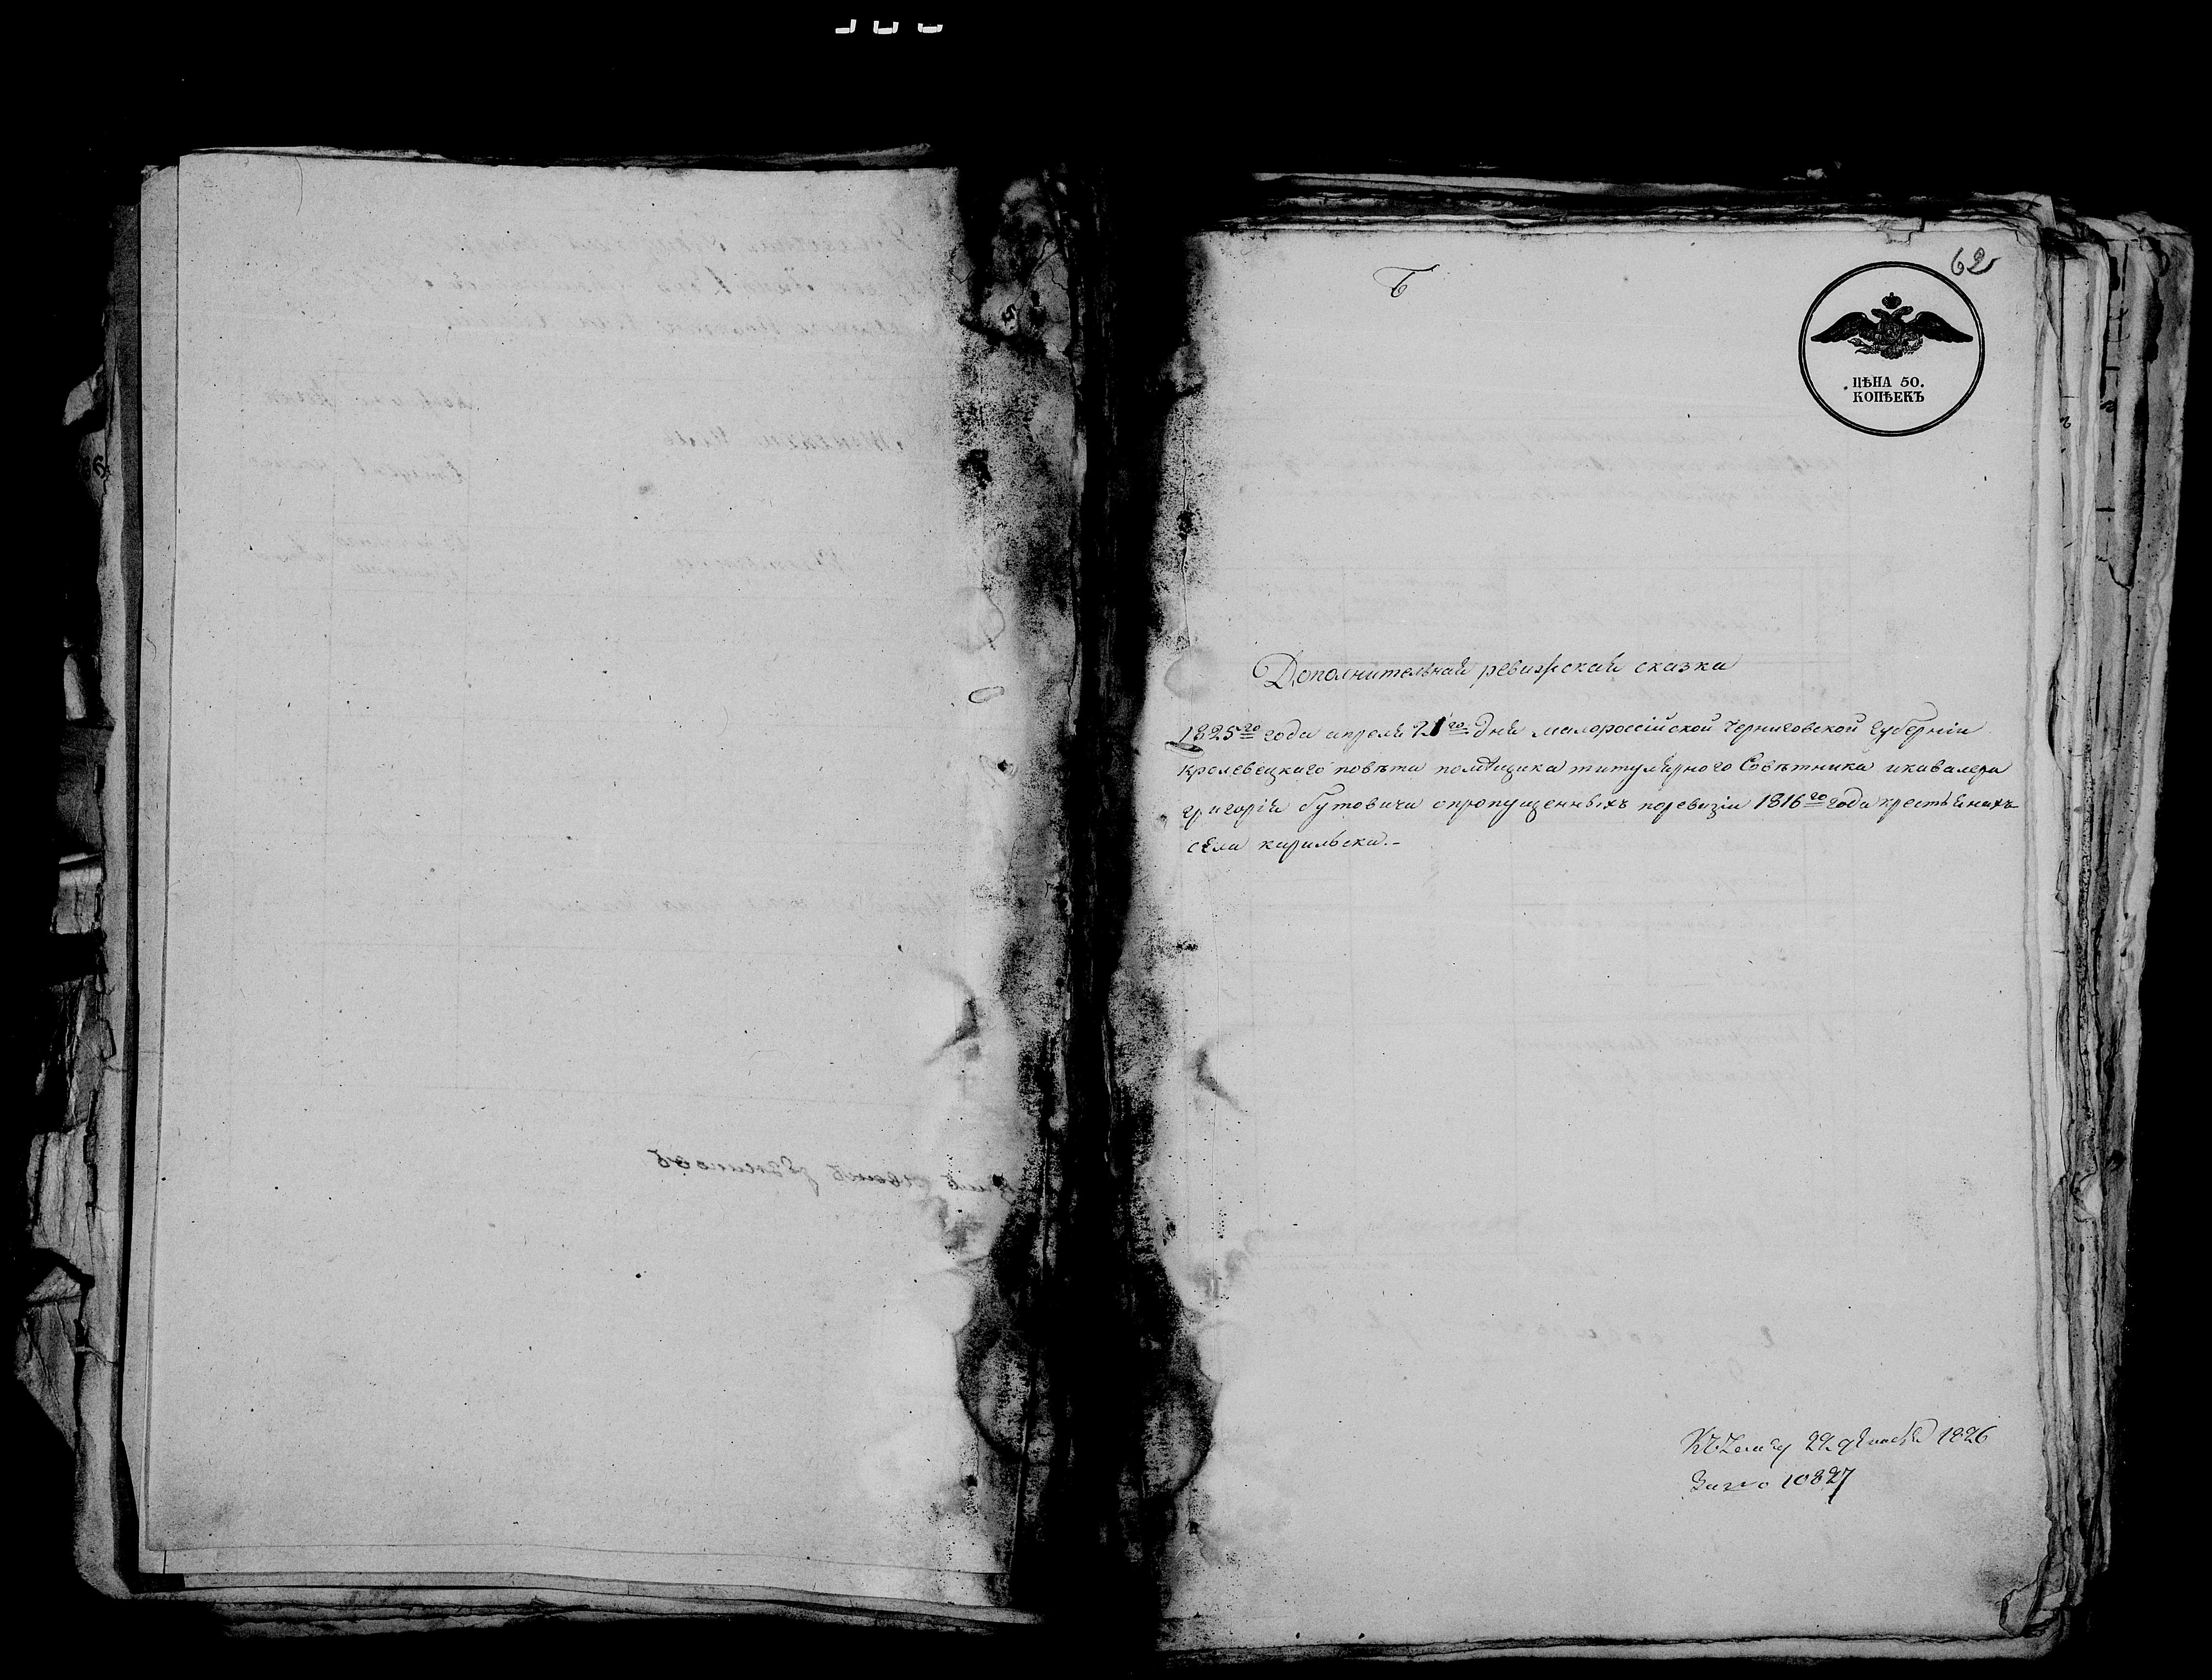 Б
62
ЦѢНА 50.
КОПѢЕКЪ
Дополнительная ревизская сказка
1825го года апреля 21го дня малороссійской черниговской губерніи
кролевецкаго повѣта помѣщика титулярного Совѣтника икавалера
григорія бутовича опропущенныхъ поревизіи 1816го года крестьянахъ
села кирилвска.-
22 1826
10827